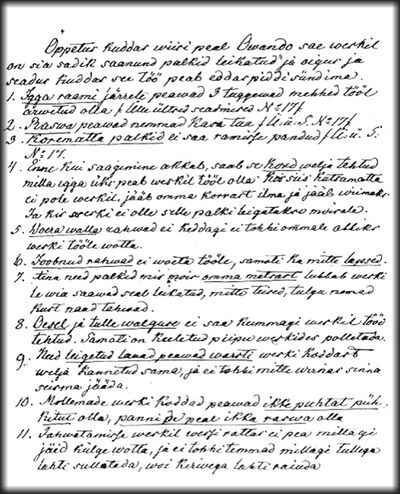 Öppetus kuddas wiisi peal Owando sae weskil
on sia sadik saanud palkid leikatud ja öigus ja
seadus kuddas see töö peab eddaspiddi sündima.
1. Igga raami järrele peawad 3 tuggewad mehhed tööl
arwetud olla f Ülle ültsed seadmised No 17 f
2. Raswa peawad nemmad kasa tua f Ü. ü. S. No 17 f
3. Korematta palkid ei saa ramisse pandud f Ü. ü. S.
No 17.
4. Enne kui saagimine akkab, saab se Kord welja tehtud
milla igga üks peab weskil tööl olla. Kes siis kutsumatta
ei pole weskil, jääb omma korrast ilma ja jääb wiimaks
Ja kis weski ei olle selle palki leigatakse moisale.
5. Woera walla rahwad ei keddagi ei tohhi ommale abliks
weski tööle wotta.
6. Joobnud rahwad ei woeta tööle, samati ka mitte lapsed.
7. Aina need palkid mis mois omma metsast lubbab weski
le wia saawad seal leikatud, mitte teised, tulgu nemad
kust naad tahwad.
8. Oesel ja tulle walguse ei saa kummagi weskil tööd
tehtud. Samati on keeletud piipu weskides polletada.
9. Need leigetud lauad peawad warsti weski koddast
welja kannetud sama, ja ei tohhi mitte wärrawas sinna
seisma jääda.
10. Mollemade weski koddad peawad ikke puhtat püh-
kitut olla, panni de peal ikka raswa olla
11. Jahwatamisse weskil wessi rattas ei pea millagi
jäid külge wotta, ja ei tohhi temmad millagi tullega
lahti sullatada, woi kerwega lahti raiuda